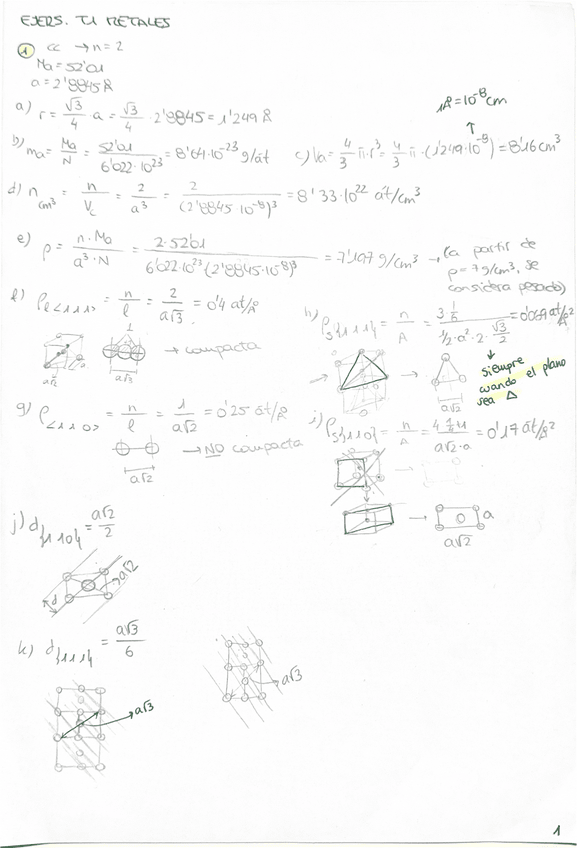 EJERS. T1 METALES
1 CC → n = 2
Ma = 52'01
a = 2'8845 Å
a) r = √3/4 a = √3/4 · 2'8845 = 1'249 Å
1Å = 10⁻⁸ cm
b) ma = Ma/N = 52'01/6'022·10²³ = 8'64·10⁻²³ g/át
c) Va = 4/3 π·r³ = 4/3 π·(1'249·10⁻⁸) = 8'16 cm³
d) n cm³ = n/Vc = 2/a³ = 2/(2'8845·10⁻⁸)³ = 8'33·10²² át/cm³
e) ρ = n·Ma/a³·N = 2·52'01/6'022·10²³·(2'8845·10⁻⁸)³ = 7'197 g/cm³ → (a partir de
ρ = 7 g/cm³, se
considera pesado)
f) ρℓ<111> = n/ℓ = 2/a√3 = 0'4 at/Å
a√2 a√3
→ compacta
g) ρ<110> = n/ℓ = 1/a√2 = 0'25 át/Å
→ NO compacta
a√2
h) ρs{111} = n/A = 3·1/6 / 1/2·a²·2·√3/2 = 0'069 at/Å²
a√2
siempre
cuando el plano
sea △
i) ρs{110} = n/A = / a√2·a = 0'17 át/Å²
a
a√2
j) d{110} = a√2/2
d a√2
k) d{111} = a√3/6
a√3
a√3
1